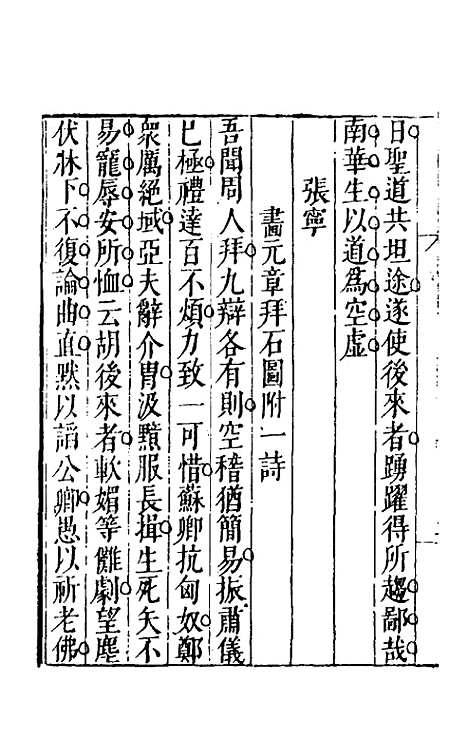 日聖道共坦途遂使後來者踴躍得所趨鄙哉
南華生以道爲空虛
張寧
畫元章拜石圖附一詩
吾聞周人拜九辯各有則空稽猶簡易振肅儀
已極禮達百不煩力致一可惜蘇卿抗匈奴鄭
衆厲絕域亞夫辭介冑汲黯服長揖生死矢不
易寵辱安所恤云胡後來者軟媚等儺劇望塵
伏牀下不復論曲直默以謟公卿愚以祈老佛